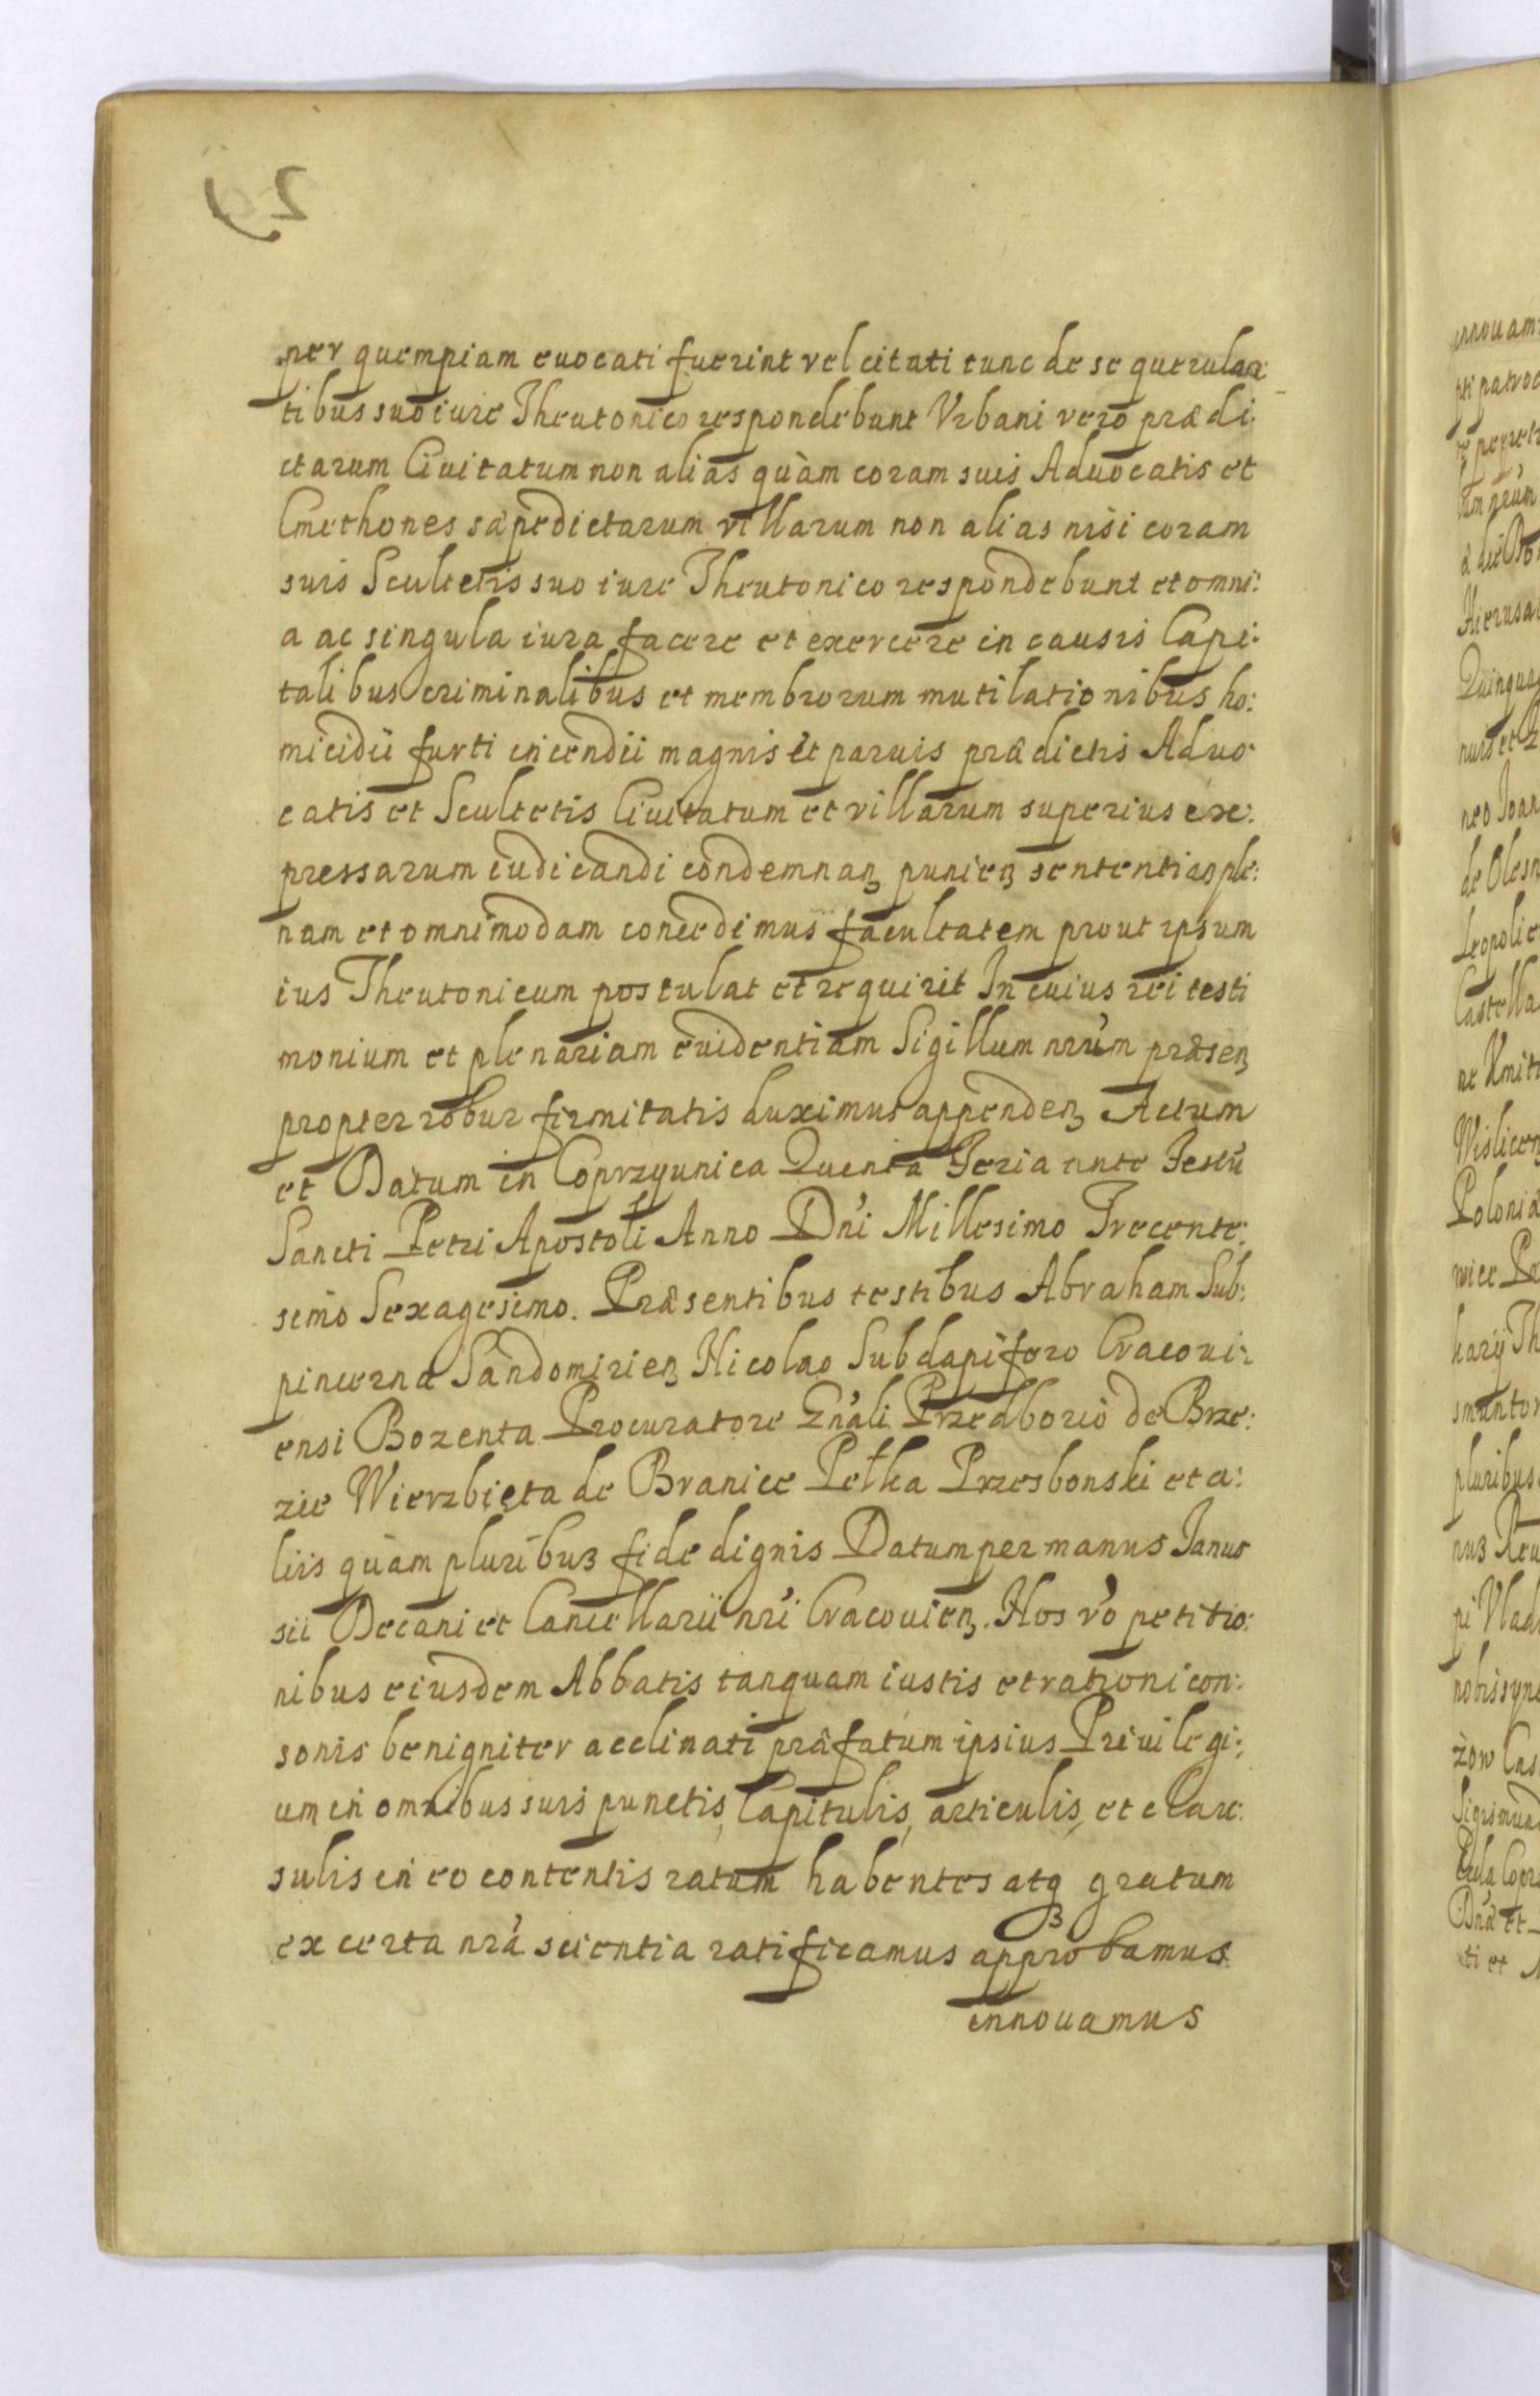 per quempiam euocati fuerint vel citati tunc de se querulan:
tibus suo iure Theutonico respondebunt Vrbani vero prædi:
ctarum Ciuitatum non alias quàm coram suis Aduocatis et
Cmethones sæpedictarum villarum non alias nisi coram
suis Scultetis suo iure Theutonico respondebunt et omni:
a ac singula iura facere et exercere in causis Capi:
talibus criminalibus et membrorum mutilationibus ho:
micidii furti incendii magnis et paruis prædictis Aduo
catis et Scultetis Ciuitatum et villarum superius ex:
pressarum iudicandi condemnanꝫ punienꝫ sententias ple:
nam et omnimodam concedimus facultatem prout ipsum
ius Theutonicum postulat et requirit In cuius rei testi
monium et plenariam euidentiam Sigillum nrũm præsenꝫ
propter robur firmitatis duximus appendenꝫ Actum
et Datum in Coprzyunica Quinta Feria ante Festũ
Sancti Petri Apostoli Anno Dn̓i Millesimo Trecente:
simo Sexagesimo. Præsentibus testibus Abraham Sub:
pincerna Sandomirienꝫ Nicolao Subdapifero Cracoui:
ensi Bozenta Procuratore Gn̓ali Przedborio de Brze:
zie Wierzbięta de Branice Pełka Przesbonski et a:
liis quàm pluribuꝫ fide dignis Datum per manus Janus
sii Decani et Cancellarii nr̓i Cracouienꝫ. Nos v̓o petitio:
nibus eiusdem Abbatis tanquam iustis et rationi con:
sonis benigniter acclinati præfatum ipsius Priuilegi:
um in omnibus suis punctis, Capitulis, articulis, et clau:
sulis in eo contentis ratum habentes atqꝫ gratum
ex certa nr̓a scientia ratificamus approbamus
innouamus